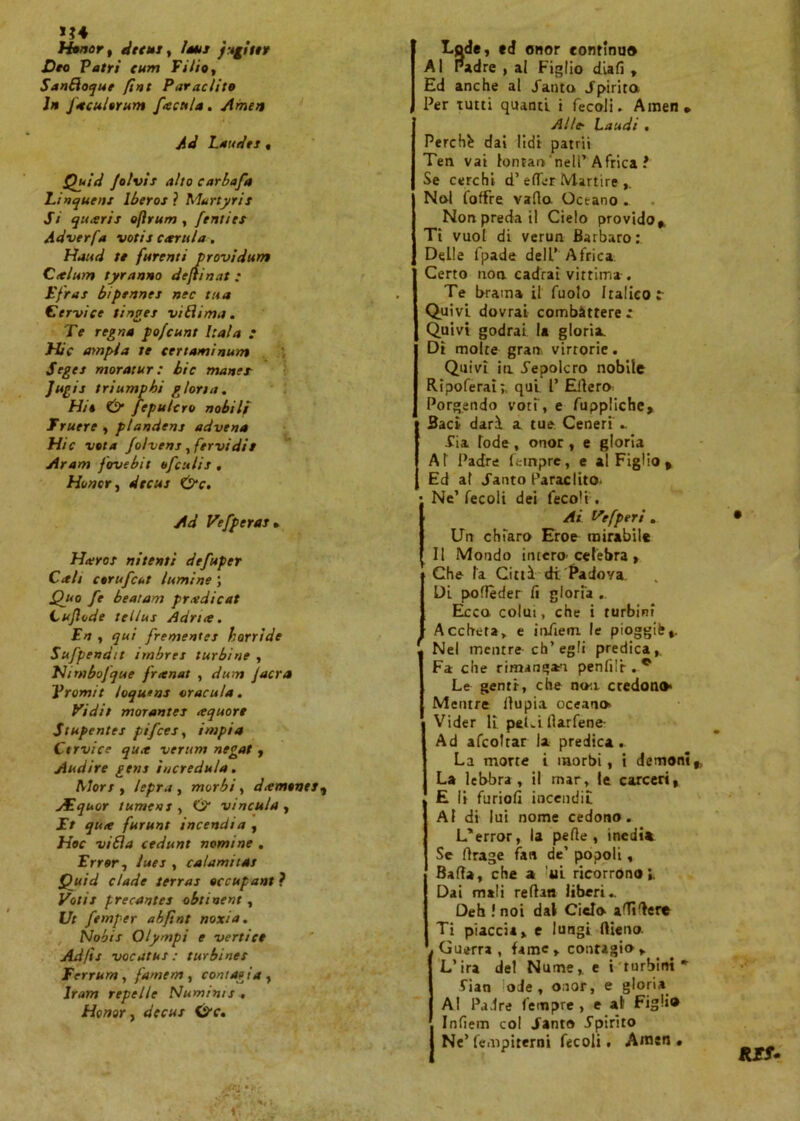 134
Honor, decus, laus jugiter
Deo Patri cum Filio,
Sanctoque sint Paraclito
In sæculorum sæcula. Amen
Ad Laudes,
Quid solvis alto carbasa
Linquens Iberos? Martyris
Si quæris ostrum, senties
Adversa votis cærula.
Haud te furenti providum
Cælum tyranno destinat:
Efras bipennes nec tua
Cervice tinges victima.
Te regna poscunt Itala:
Hic ampla te certaminum
Seges moratur: hic manes
Jugis triumphi gloria.
Hic & sepulcro nobili
Fruere, plaudens advena
Hic vota solvens, fervidis
Aram fovebit osculis,
Honor, decus &c.
Ad Vesperas.
Hæros nitenti desuper
Cæli coruscat lumine;
Quo se beatam prædicat
Custode tellus Adriæ.
En, qui frementes horride
Suspendit imbres turbine,
Nimbosque frænat, dum sacra
Promit loquens oracula.
Vidit morantes æquore
Stupentes pisces, impia
Cervice quæ verum negat,
Audire gens incredula.
Mors, lepra, morbi, dæmones,
Æquor tumens, & vincula,
Et quæ furunt incendia,
Hoc victa cedunt nomine.
Error, lues, calamitas
Quid clade terras occupant?
Votis precantes obtinent,
Ut semper absint noxia.
Nobis Olympi e vertice
Adsis vocatus: turbines
Ferrum, famem, contagia,
Iram repelle Numinis.
Honor, decus &c.
Lode, ed onor continuo
Al Padre, al Figlio diasi,
Ed anche al Santo Spirito
Per tutti quanti i secoli. Amen.
Alle Laudi.
Perchè dai lidi patrii
Ten vai lontan nell'Africa?
Se cerchi d'esser Martire,
Nol soffre vasto Oceano.
Non preda il Cielo provido,
Ti vuol di verun Barbaro:
Delle spade dell'Africa
Certo non cadrai vittima.
Te brama il suolo Italico:
Quivi dovrai combàttere:
Quivi godrai la gloria
Di molte gran vittorie.
Quivi in Sepolcro nobile
Riposerai; qui l'Estero
Porgendo voti, e suppliche,
Baci darà a tue Ceneri.
Sia lode, onor, e gloria
Al Padre sempre, e al Figlio,
Ed al Santo Paraclito
Ne' secoli dei secoli.
Ai Vesperi.
Un chiaro Eroe mirabile
Il Mondo intero celebra,
Che la Città di Padova
Di posseder si gloria.
Ecco colui, che i turbini
Accheta, e insiem le pioggiè,
Nel mentre ch'egli predica,
Fa che rimangan pensili.
Le genti, che non credono
Mentre stupia oceano
Vider li pesci starsene
Ad ascoltar la predica.
La morte i morbi, i demoni,
La lebbra, il mar, le carceri,
E li furiosi incendii
Al di lui nome cedono.
L'error, la peste, inedia
Se strage fan de' popoli,
Basta, che a lui ricorrono;
Dai mali restan liberi.
Deh! noi dal Cielo assistere
Ti piaccia, e lungi stieno
Guerra, fame, contagio,
L'ira del Nume, e i turbini
Sian lode, onor, e gloria
Al Padre sempre, e al Figlio
Insiem col Santo Spirito
Ne' sempiterni secoli. Amen.
RES-